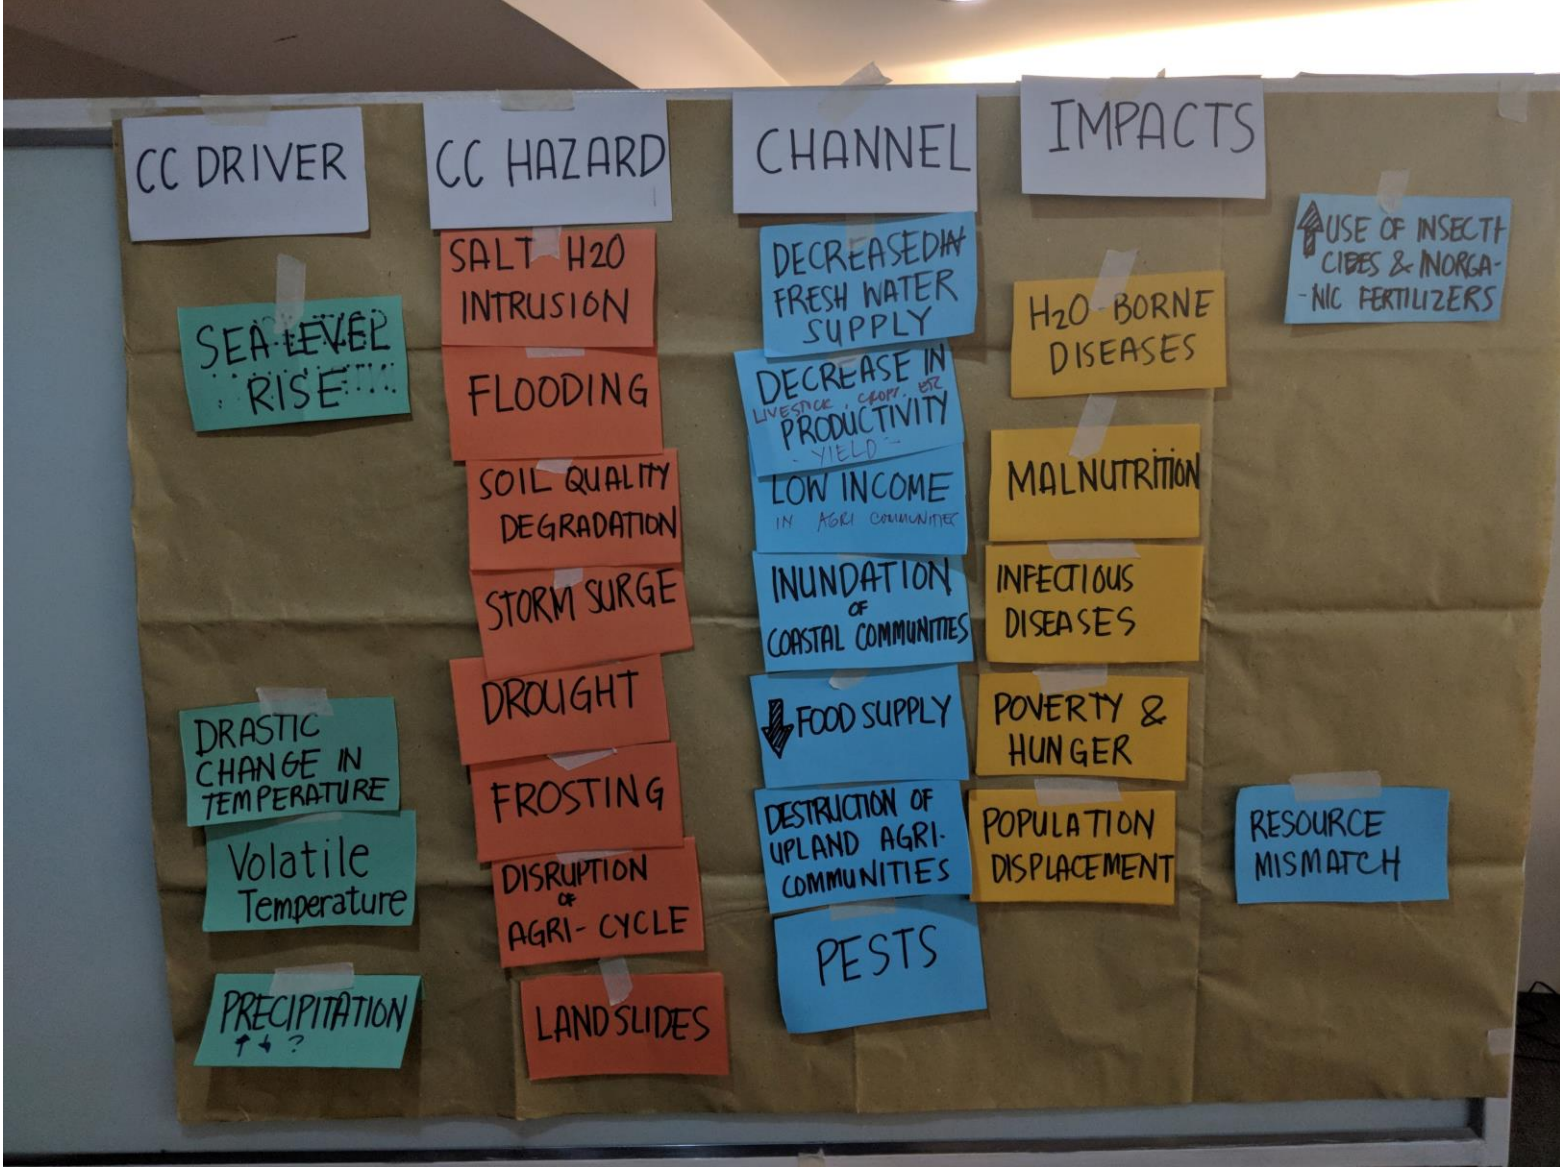 CC DRIVER
SEA LEVEL
RISE
DRASTIC
CHANGE IN
TEMPERATURE
Volatile
Temperature
PRECIPITATION
↑ ↓ ?
CC HAZARD
SALT H2O
INTRUSION
FLOODING
SOIL QUALITY
DEGRADATION
STORM SURGE
DROUGHT
FROSTING
DISRUPTION
OF
AGRI-CYCLE
LANDSLIDES
CHANNEL
DECREASED
FRESH WATER
SUPPLY
DECREASE IN
LIVESTOCK, CROPS, ETC
PRODUCTIVITY
- YIELD -
LOW INCOME
IN AGRI COMMUNITIES
INUNDATION
OF
COASTAL COMMUNITIES
↓ FOOD SUPPLY
DESTRUCTION OF
UPLAND AGRI-
COMMUNITIES
PESTS
IMPACTS
H2O-BORNE
DISEASES
MALNUTRITION
INFECTIOUS
DISEASES
POVERTY &
HUNGER
POPULATION
DISPLACEMENT
↑ USE OF INSECTI
CIDES & INORGA-
-NIC FERTILIZERS
RESOURCE
MISMATCH